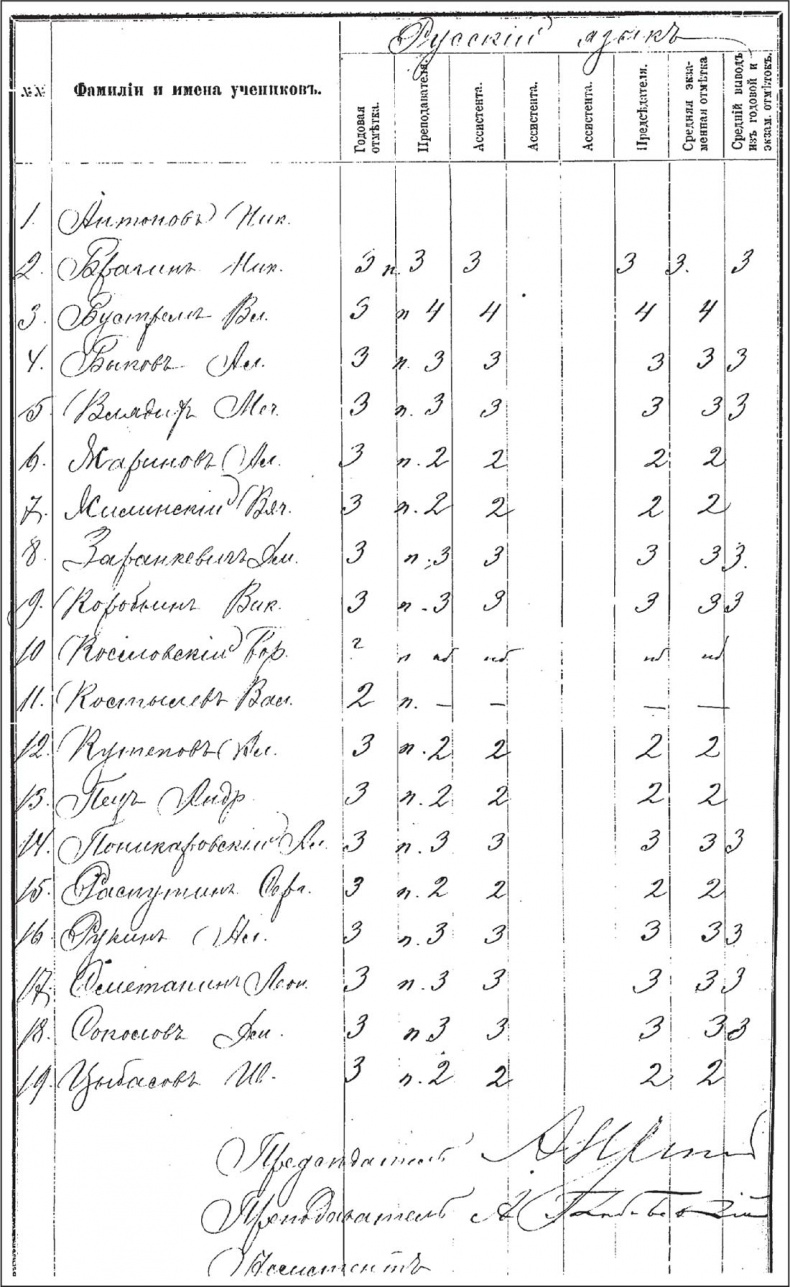 Русскій языкъ
№№ Фамиліи и имена учениковъ. Годовая отмѣтка. Преподавателя. Ассистента. Ассистента. Ассистента. Предсѣдателя. Средняя экзаменная отмѣтка Средній выводъ изъ годовой и экзам. отмѣтокъ.
1. Антоновъ Ник.
2. Брагинъ Ник. 3 п. 3 3 3 3. 3
3. Бустремъ Вл. 3 п 4 4 4 4
4. Быковъ Ал. 3 п. 3 3 3 3 3
5. Меч. 3 п. 3 3 3 3 3
6. Жариновъ Ал. 3 п. 2 2 2 2
7. Жилинскій Вяч. 3 п. 2 2 2 2
8. Заранкевичъ 3 п. 3 3 3 3 3.
9. Коробьинъ Вик. 3 п. 3 3 3 3 3
10 Бор. п нб нб нб нб
11. Костылевъ Вас. 2 п. — — — —
12. Кутеповъ Ал. 3 п. 2 2 2 2
13. Пецъ Андр. 3 п. 2 2 2 2
14. Поникаровскій Ал. 3 п. 3 3 3 3 3
15. Распутинъ Серг. 3 п. 2 2 2 2
16 Рукинъ Ал. 3 п. 3 3 3 3 3
17. Сметанинъ Леон. 3 п. 3 3 3 3 3
18. Соколовъ 3 п 3 3 3 3 3
19. Цыбасовъ Ив. 3 п. 2 2 2 2
Предсѣдатель
Преподаватель А
Ассистентъ